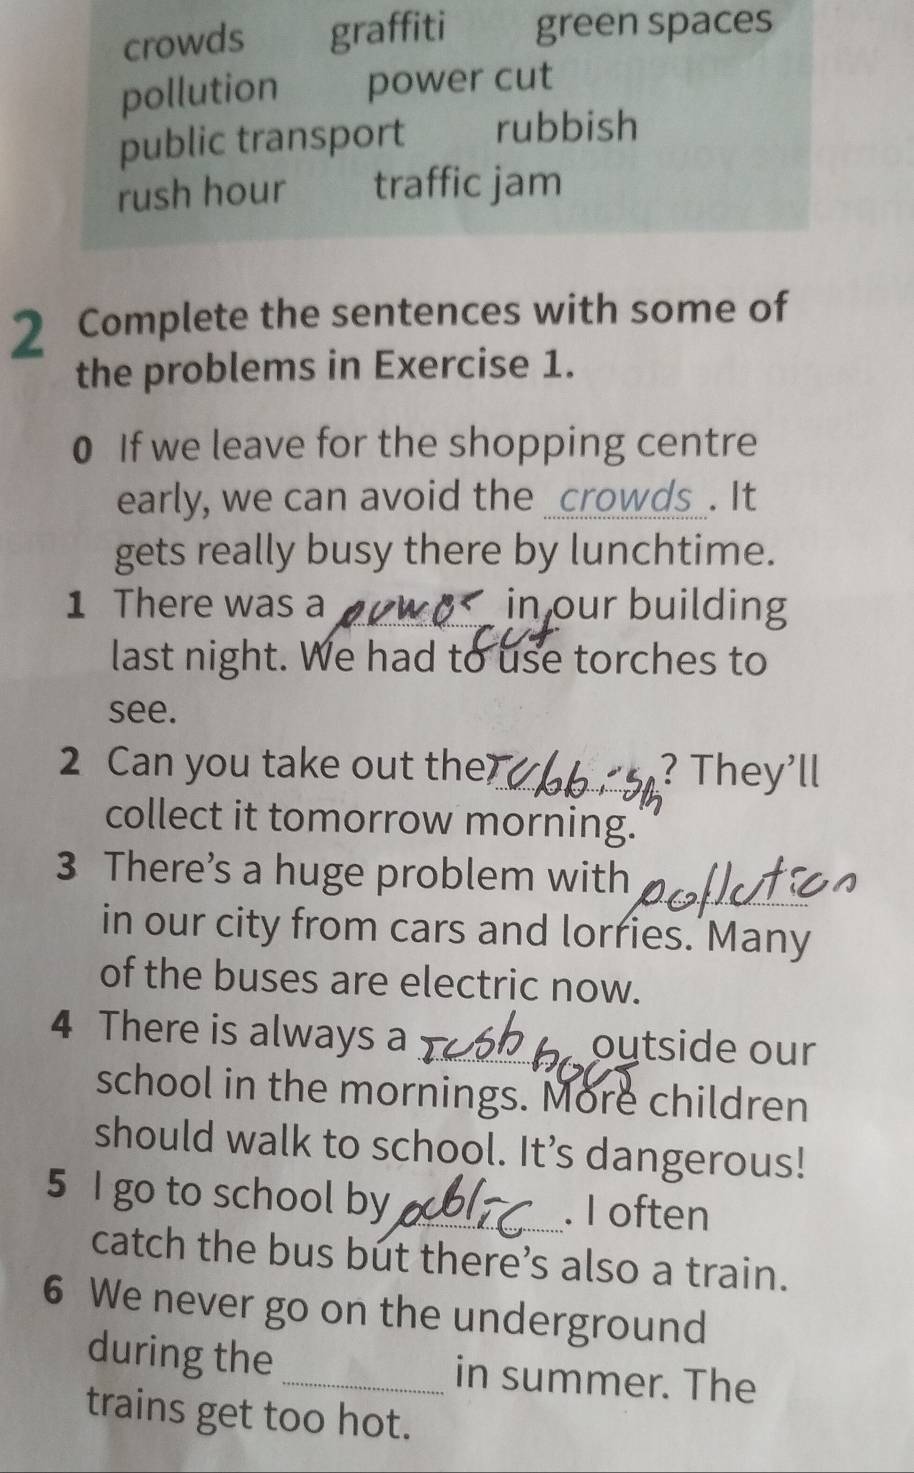 crowds graffiti green spaces
pollution power cut
public transport rubbish
rush hour traffic jam
2 Complete the sentences with some of
the problems in Exercise 1.
0 If we leave for the shopping centre
early, we can avoid the crowds. It
gets really busy there by lunchtime.
1 There was a power in our building
cut
last night. We had to use torches to
see.
2 Can you take out the rubbish? They'll
collect it tomorrow morning.
3 There's a huge problem with pollution
in our city from cars and lorries. Many
of the buses are electric now.
4 There is always a rush hour outside our
school in the mornings. More children
should walk to school. It's dangerous!
5 I go to school by public. I often
catch the bus but there's also a train.
6 We never go on the underground
during the in summer. The
trains get too hot.